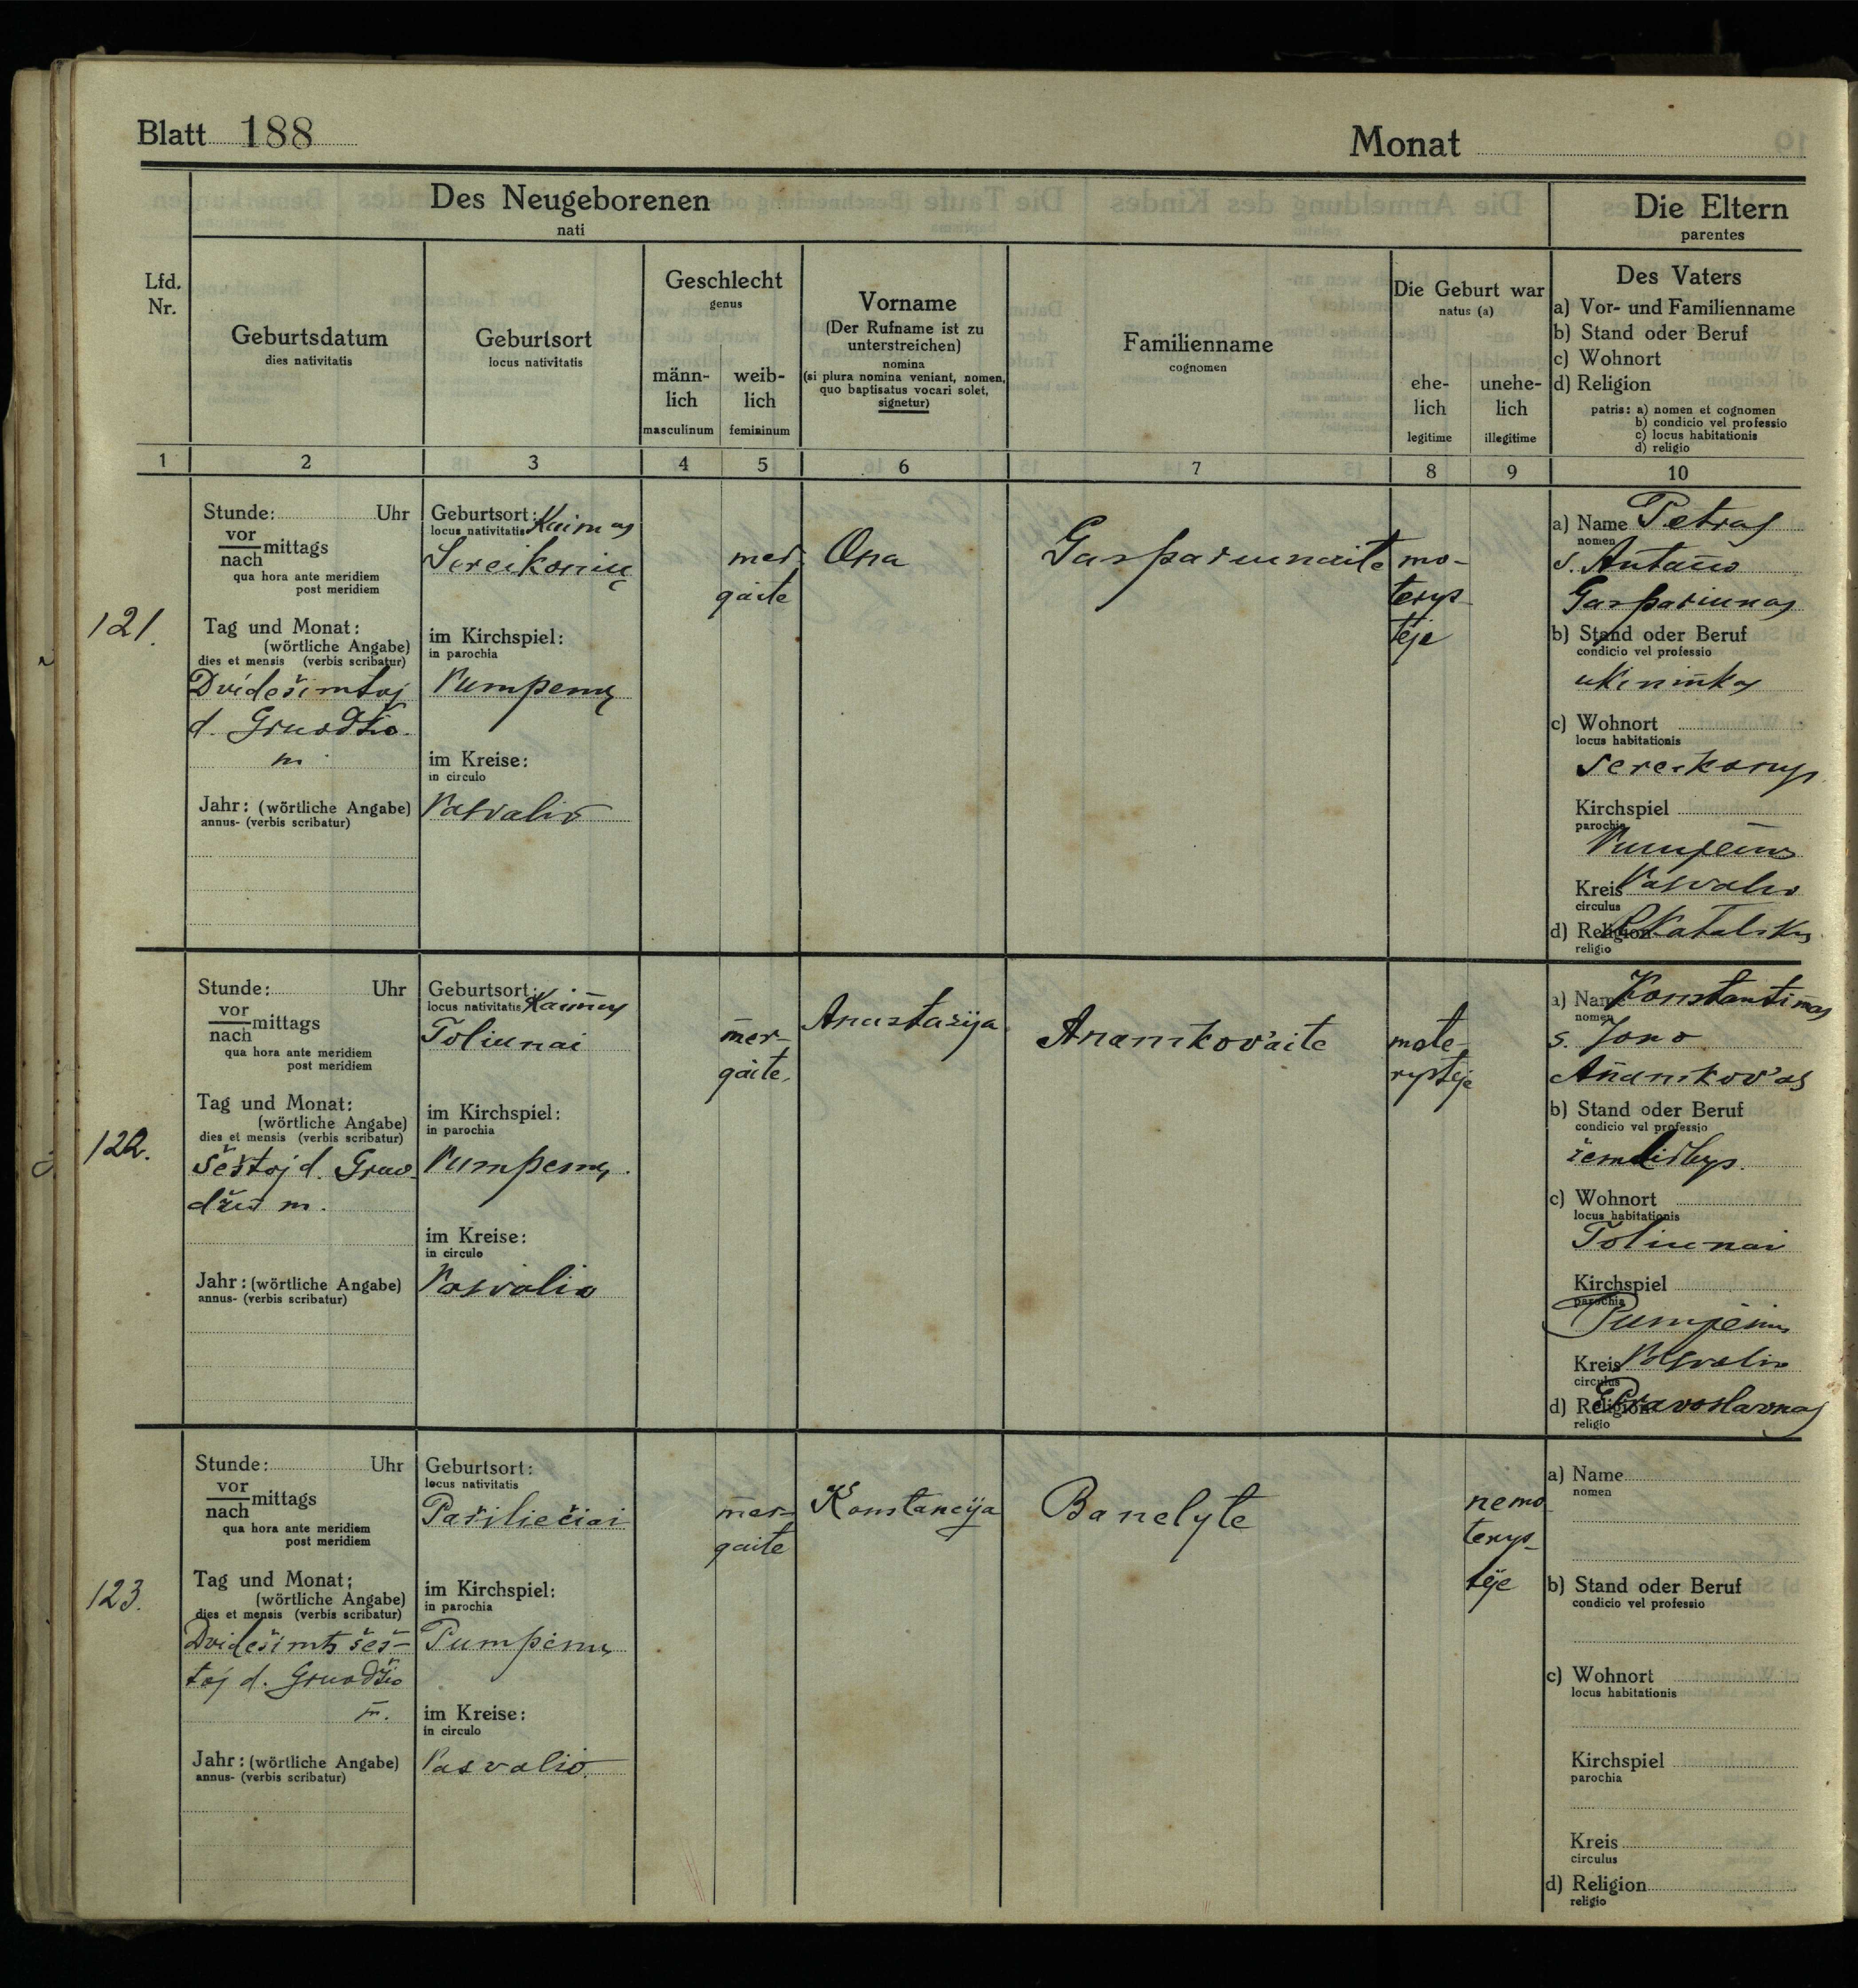 Blatt 188
Monat
Des Neugeborenen
nati
Die Eltern
parentes
Lfd.
Nr.
Geburtsdatum
dies nativitatis
Geburtsort
locus nativitatis
Geschlecht
genus
männ-
lich
masculinum
weib-
lich
femininum
Vorname
(Der Rufname ist zu
unterstreichen)
nomina
(si plura nomina veniant, nomen,
quo baptisatus vocari solet,
signetur)
Familienname
cognomen
Die Geburt war
natus (a)
ehe-
lich
legitime
unehe-
lich
illegitime
Des Vaters
a) Vor- und Familienname
b) Stand oder Beruf
c) Wohnort
d) Religion
patris: a) nomen et cognomen
b) condicio vel professio
c) locus habitationis
d) religio
1 2 3 4 5 6 7 8 9 10
121.
Stunde: Uhr
vor
nach mittags
qua hora ante meridiem
post meridiem
Tag und Monat:
(wörtliche Angabe)
dies et mensis (verbis scribatur)
Dvidešimtoj
d. Gruodžio
m.
Jahr: (wörtliche Angabe)
annus- (verbis scribatur)
Geburtsort: Kaimas
locus nativitatis
Sereikonių
im Kirchspiel:
in parochia
Pumpenų
im Kreise:
in circulo
Pasvalio
mer
gaite
Ona
Gaspariunaite
mo-
terys-
tėje
a) Name Petras
nomen
s. Antano
Gaspariunas
b) Stand oder Beruf
condicio vel professio
ukininkas
c) Wohnort
locus habitationis
Sereikonys
Kirchspiel
parochia
Pumpenų
Kreis Pasvalio
circulus
d) Religion R Katalikų
religio
122.
Stunde: Uhr
vor
nach mittags
qua hora ante meridiem
post meridiem
Tag und Monat:
(wörtliche Angabe)
dies et mensis (verbis scribatur)
Šeštoj d. Gruo-
džio m.
Jahr: (wörtliche Angabe)
annus- (verbis scribatur)
Geburtsort: Kaimas
locus nativitatis
Toliunai
im Kirchspiel:
in parochia
Pumpenų.
im Kreise:
in circulo
Pasvalio
mer-
gaite.
Anastazija
Ananikovaite
mote-
rystėje
a) Name Konstantinas
nomen
s. Jono
Ananikovas
b) Stand oder Beruf
condicio vel professio
žemdirbys.
c) Wohnort
locus habitationis
Toliunai
Kirchspiel
parochia
Pumpenų
Kreis Pasvalio
circulus
d) Religion Pravoslavnas
religio
123.
Stunde: Uhr
vor
nach mittags
qua hora ante meridiem
post meridiem
Tag und Monat:
(wörtliche Angabe)
dies et mensis (verbis scribatur)
Dvidešimts šeš-
toj d. Gruodžio
m.
Jahr: (wörtliche Angabe)
annus- (verbis scribatur)
Geburtsort:
locus nativitatis
Pašiliečiai
im Kirchspiel:
in parochia
Pumpenų
im Kreise:
in circulo
Pasvalio.
mer-
gaite
Konstancija
Banelyte
nemo
terys-
tėje
a) Name
nomen
b) Stand oder Beruf
condicio vel professio
c) Wohnort
locus habitationis
Kirchspiel
parochia
Kreis
circulus
d) Religion
religio